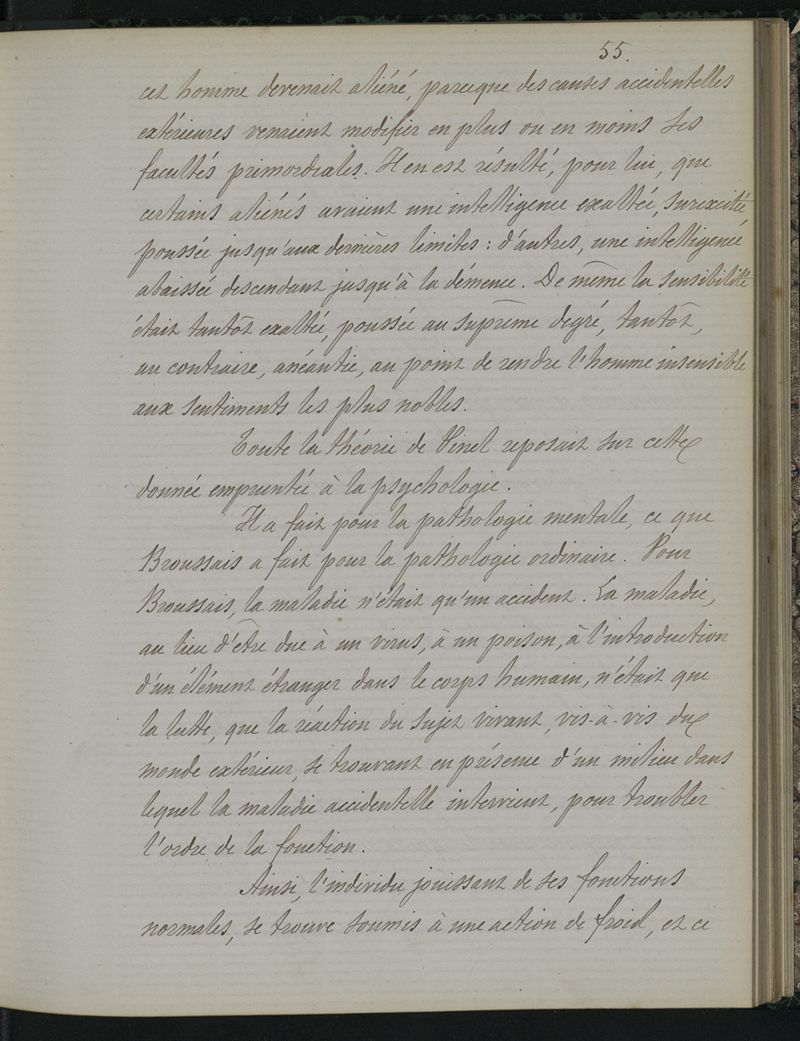 55.
cet homme devenait aliéné, parceque des causes accidentelles
extérieures venaient modifier en plus ou en moins ses
facultés primordiales. Il en est résulté, pour lui, que
certains aliénés avaient une intelligence exaltée, surexcitée,
poussée jusqu'aux dernières limites : d'autres, une intelligence
abaissée descendant jusqu'à la démence. De même la sensibilité
était tantôt exaltée, poussée au suprême degré, tantôt,
au contraire, anéantie, au point de rendre l'homme insensible
aux sentiments les plus nobles.
Toute la théorie de Pinel reposait sur cette
donnée empruntée à la psychologie.
Il a fait pour la pathologie mentale, ce que
Broussais a fait pour la pathologie ordinaire. Pour
Broussais, la maladie n'était qu'un accident. La maladie,
au lieu d'être due à un virus, à un poison, à l'introduction
d'un élément étranger dans le corps humain, n'était que
la lutte, que la réaction du sujet vivant, vis-à-vis du
monde extérieur, se trouvant en présence d'un milieu dans
lequel la maladie accidentelle intervient, pour troubler
l'ordre de la fonction.
Ainsi, l'individu jouissant de ses fonctions
normales, se trouve soumis à une action de froid, et ci